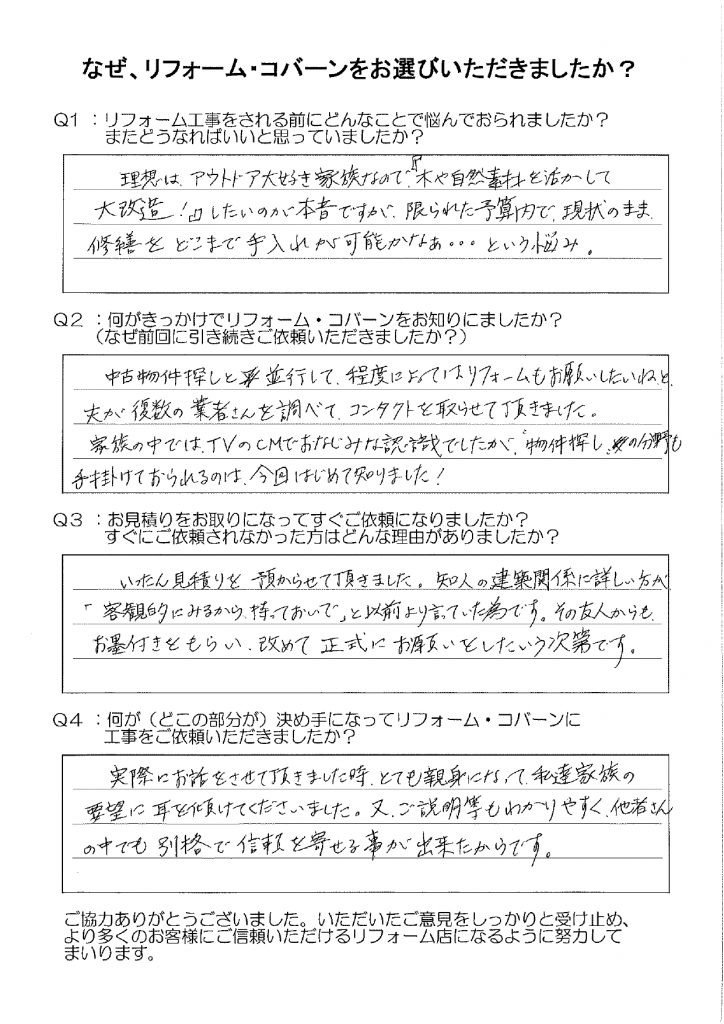 なぜ、リフォーム・コバーンをお選びいただきましたか？
Q1：リフォーム工事をされる前にどんなことで悩んでおられましたか？
またどうなればいいと思っていましたか？
理想は、アウトドア大好き家族なので、『木や自然素材を活かして
大改造！』したいのが本音ですが、限られた予算内で、現状のまま
修繕をどこまで手入れが可能かなぁ・・・という悩み。
Q2：何がきっかけでリフォーム・コバーンをお知りにましたか？
（なぜ前回に引き続きご依頼いただきましたか？）
中古物件探しと並行して、程度によってはリフォームもお願いしたいねと、
夫が復数の業者さんを調べて、コンタクトを取らせて頂きました。
家族の中では、TVのCMでおなじみな認識でしたが、物件探しの分野も
手掛けておられるのは、今回はじめて知りました！
Q3：お見積りをお取りになってすぐご依頼になりましたか？
すぐにご依頼されなかった方はどんな理由がありましたか？
いったん見積りを預からせて頂きました。知人の建築関係に詳しい方が
「客観的にみるから、持っておいで」と以前より言っていた為です。その友人からも
お墨付きをもらい、改めて正式にお願いをしたいう次第です。
Q4：何が（どこの部分が）決め手になってリフォーム・コバーンに
工事をご依頼いただきましたか？
実際にお話をさせて頂きました時、とても親身になって、私達家族の
要望に耳を傾けてくださいました。又、ご説明等もわかりやすく、他者さん
の中でも別格で信頼を寄せる事が出来たからです。
ご協力ありがとうございました。いただいたご意見をしっかりと受け止め、
より多くのお客様にご信頼いただけるリフォーム店になるように努力して
まいります。